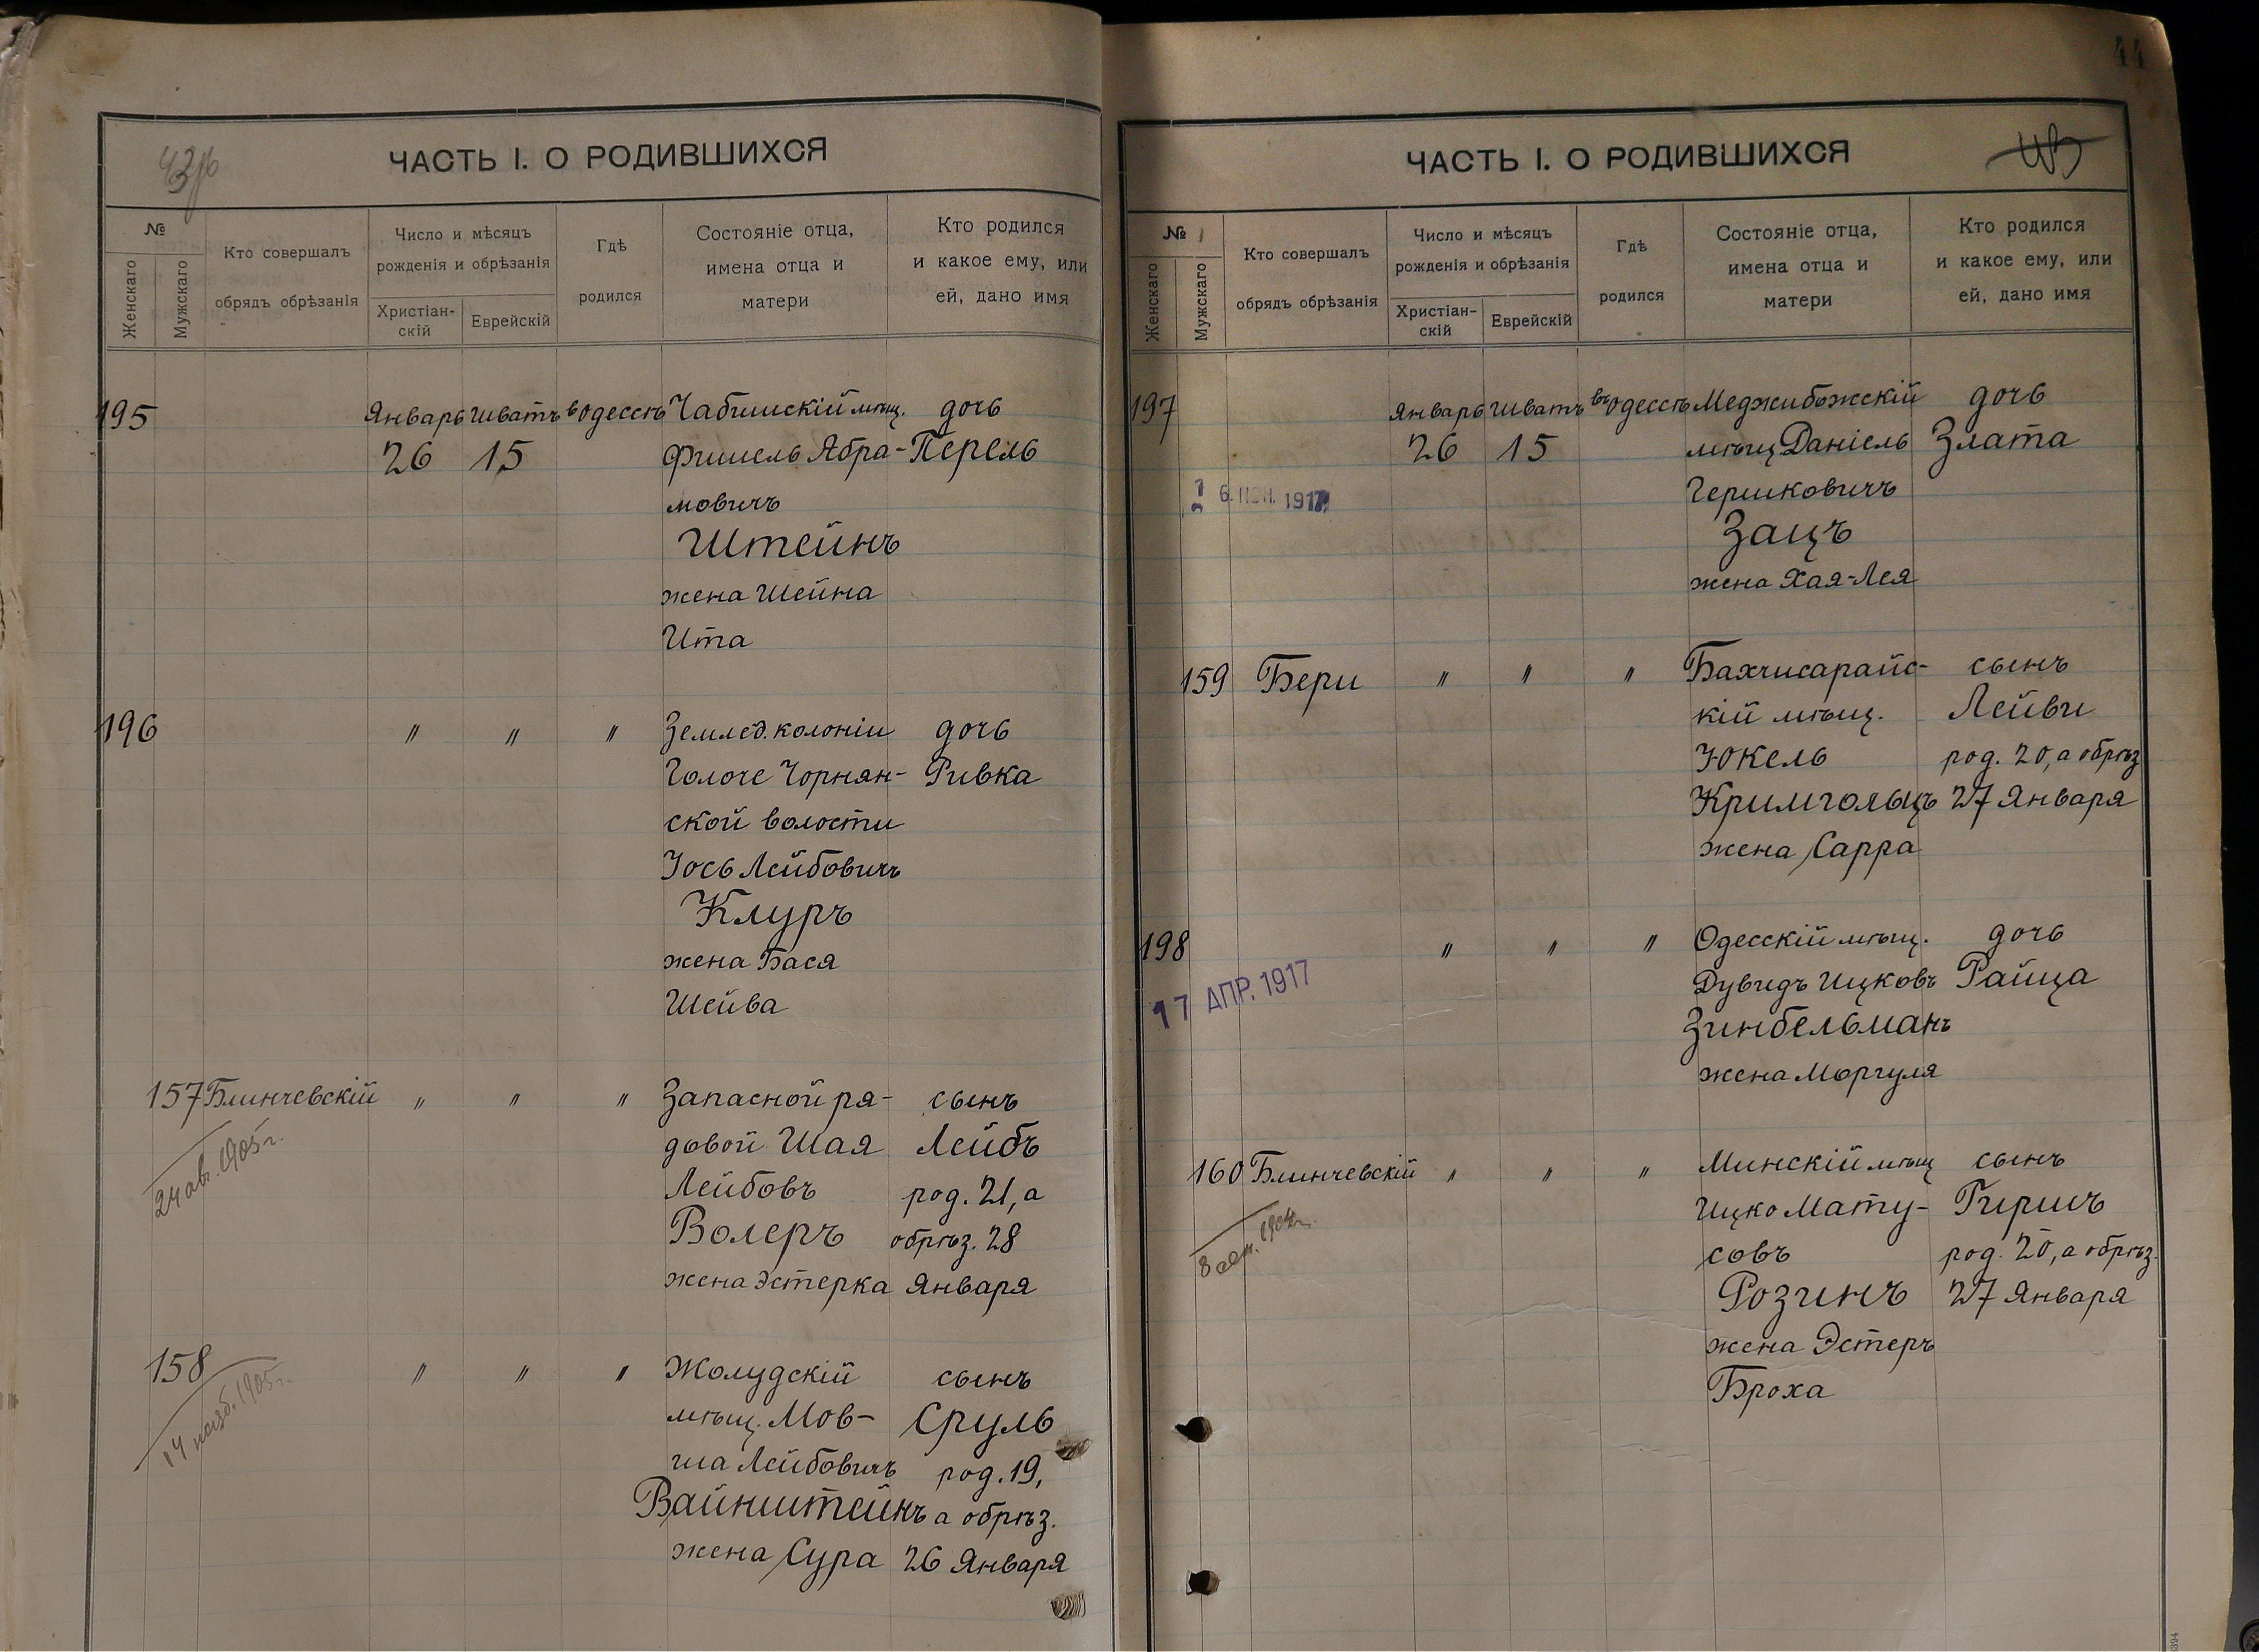 ЧАСТЬ I. О РОДИВШИХСЯ
№
Женскаго
Мужскаго
Кто совершалъ
обрядъ обрѣзанія
Число и мѣсяцъ
рожденія и обрѣзанія
Христіан-
скій
Еврейскій
Гдѣ
родился
Состояніе отца,
имена отца и
матери
Кто родился
и какое ему, или
ей, дано имя
195 Январь Шватъ в Одессѣ Чабишскій мѣщ. дочь
26 15 Фишель Абра- Перель
мовичъ
Штейнъ
жена Шейна
Ита
196 " " " Землед. колоніи дочь
Голоче Чорнян- Ривка
ской волости
Іось Лейбовичъ
Клуръ
жена Бася
Шейва
157 Блинчевскій " " " Запасной ря- сынъ
24 авг. 1905 г.
довой Шая Лейбъ
Лейбовъ род. 21, а
Волеръ обрѣз. 28
жена Эстерка Января
158 " " " Жолудскій сынъ
14 нояб. 1905 г.
мѣщ. Мов- Сруль
ша Лейбовичъ род. 19,
Вайнштейнъ а обрѣз.
жена Сура 26 Января
44
ЧАСТЬ I. О РОДИВШИХСЯ
№
Женскаго
Мужскаго
Кто совершалъ
обрядъ обрѣзанія
Число и мѣсяцъ
рожденія и обрѣзанія
Христіан-
скій
Еврейскій
Гдѣ
родился
Состояніе отца,
имена отца и
матери
Кто родился
и какое ему, или
ей, дано имя
197 Январь Шватъ въ Одессѣ Меджибожскій дочь
26 15 мѣщ Даніель Злата
Гершковичъ
Зацъ
жена Хая-Лея
159 Бери " " " Бахчисарайс- сынъ
кій мѣщ. Лейви
Юкель род. 20, а обрѣз
Кримгольцъ 27 Января
жена Сарра
198 " " " Одесскій мѣщ. дочь
17 АПР. 1917
Дувидъ Ицковъ Райца
Зинбельманъ
жена Моргуля
160 Блинчевскій " " " Минскій мѣщ сынъ
Ицко Мату- Гиршъ
совъ род. 20, а обрѣз.
Розинъ 27 Января
жена Эстеръ
Броха